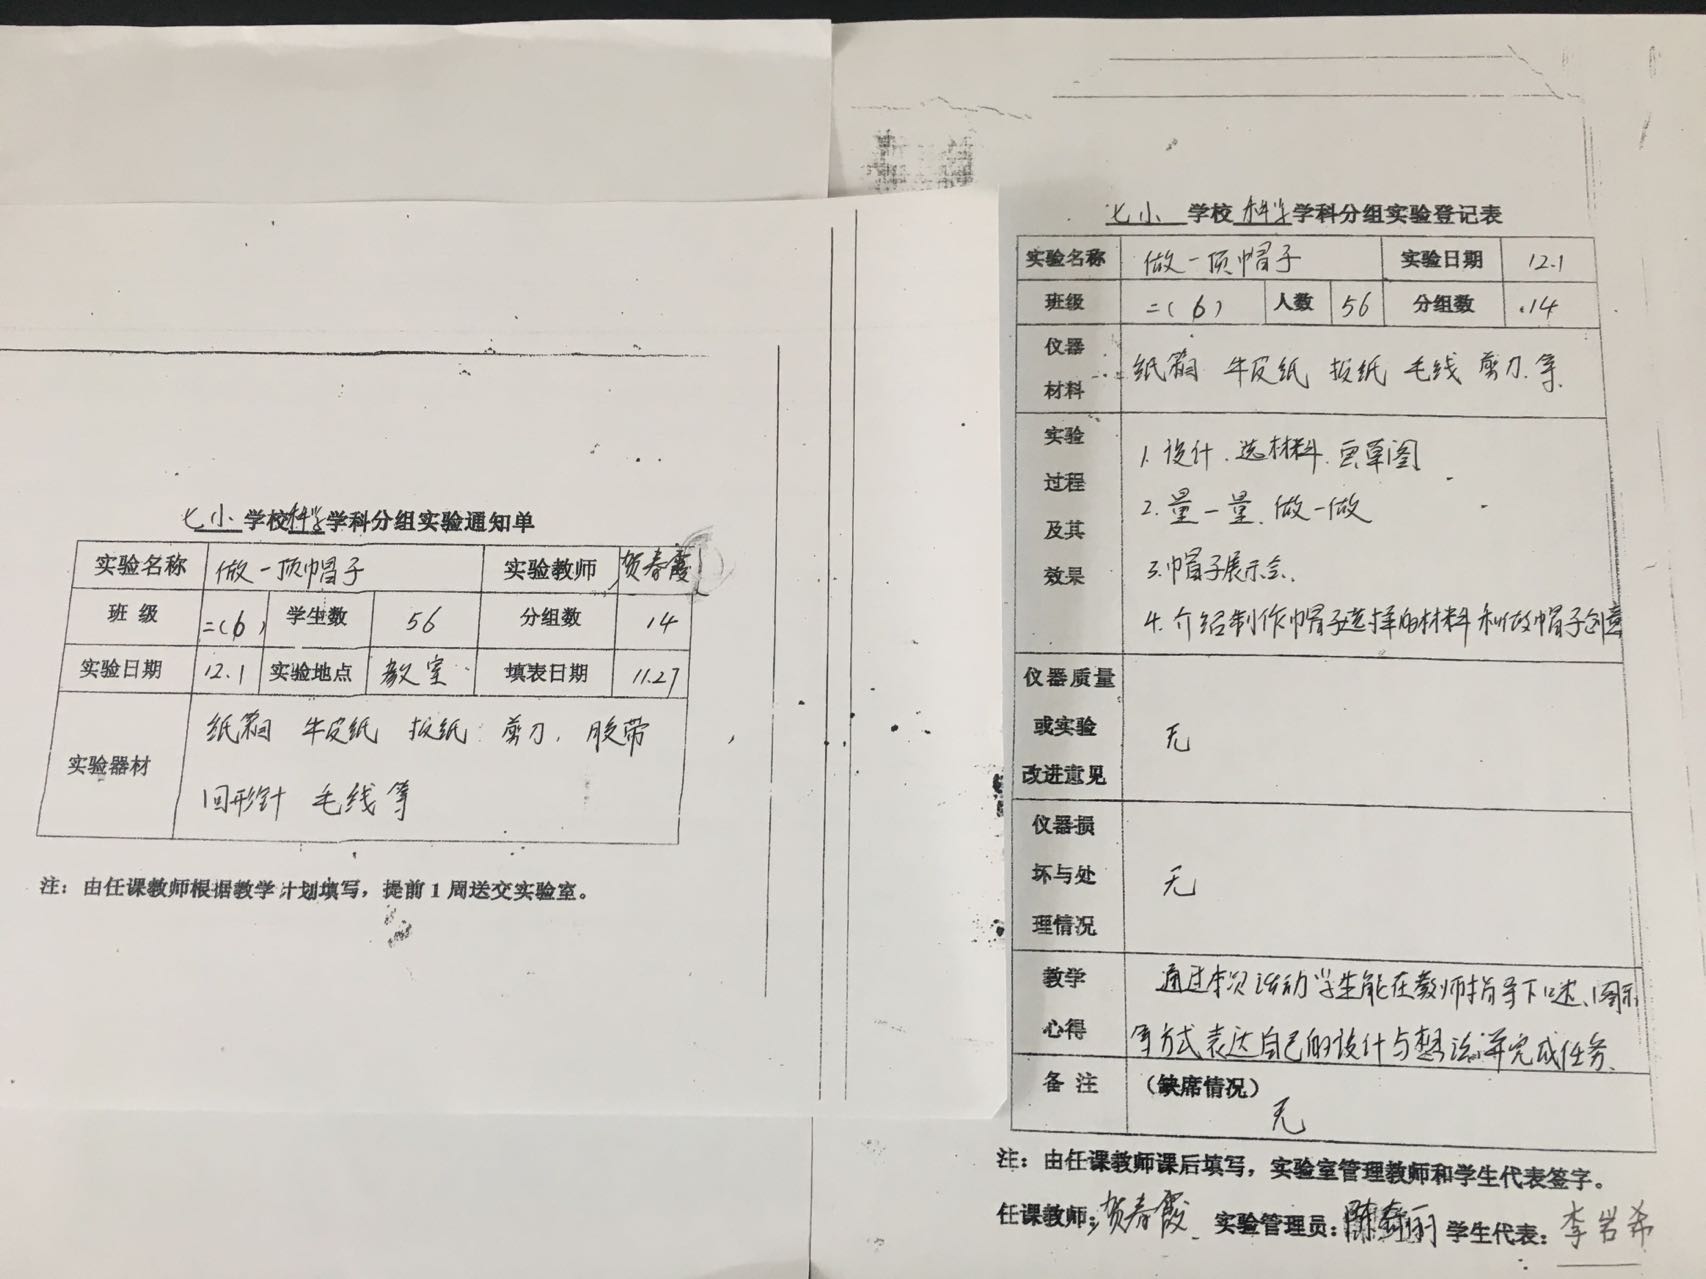 七小 学校科学学科分组实验通知单
实验名称 做一顶帽子 实验教师 贺春霞
班级 二(6) 学生数 56 分组数 14
实验日期 12.1 实验地点 教室 填表日期 11.27
实验器材
纸箱 牛皮纸 板纸 剪刀. 胶带
回形针 毛线等
注：由任课教师根据教学计划填写，提前1周送交实验室。
七小 学校科学学科分组实验登记表
实验名称 做一顶帽子 实验日期 12.1
班级 二(6) 人数 56 分组数 14
仪器
材料
纸箱 牛皮纸 板纸 毛线 剪刀.等.
实验
过程
及其
效果
1. 设计.选材料.画草图
2. 量一量.做一做
3. 帽子展示会.
4. 介绍制作帽子选择的材料和做帽子创意
仪器质量
或实验
改进意见
无
仪器损
坏与处
理情况
无
教学
心得
通过本次活动学生能在教师指导下口述、图示
等方式表达自己的设计与想法,并完成任务.
备注 （缺席情况）
无
注：由任课教师课后填写，实验室管理教师和学生代表签字。
任课教师：贺春霞 实验管理员： 学生代表：李岩希